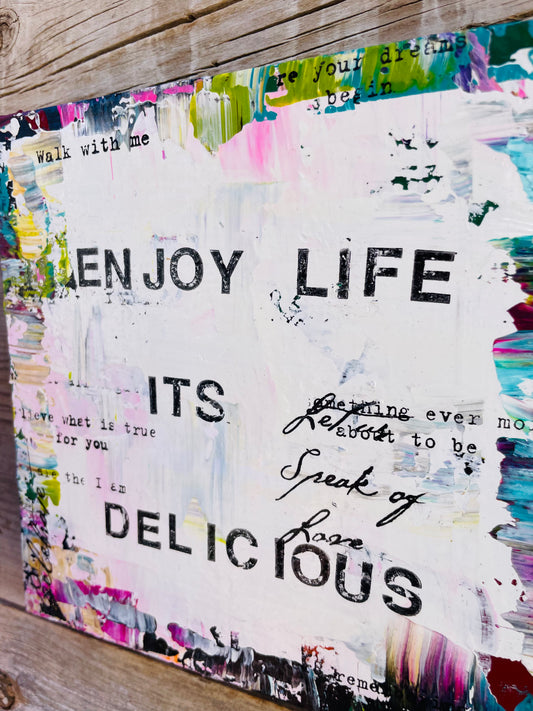 re your dreams
begin
Walk with me
ENJOY LIFE
ITS
ieve what is true
for you
the I am
something ever mo
about to be
Let us
Speak of
Love
DELICIOUS
reme